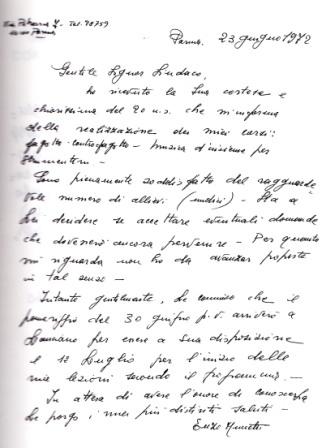 Via Petrarca 7 - Tel. 
43100 Parma
Parma. 23 giugno 1972
Gentile Signor Sindaco,
ho ricevuto la Sua cortese e
chiarissima del 20 u.s. che m'informa
della realizzazione dei miei corsi:
fagotto - controfagotto - musica d'insieme per
strumentini -
Sono pienamente soddisfatto del ragguarde
vole numero di allievi (undici) - Sta a
Lei decidere se accettare eventuali domande
che dovessero ancora pervenire - Per quanto
mi riguarda non ho da avanzar proposte
in tal senso -
Intanto gentilmente, Le comunico che il
pomeriggio del 30 giugno p.v. arriverò a
Lanciano per essere a sua disposizione
e il 1° Luglio per l'inizio delle
mie lezioni secondo il programma. -
In attesa di avere l'onore di conoscerLa
Le porgo i miei più distinti saluti -
Enzo